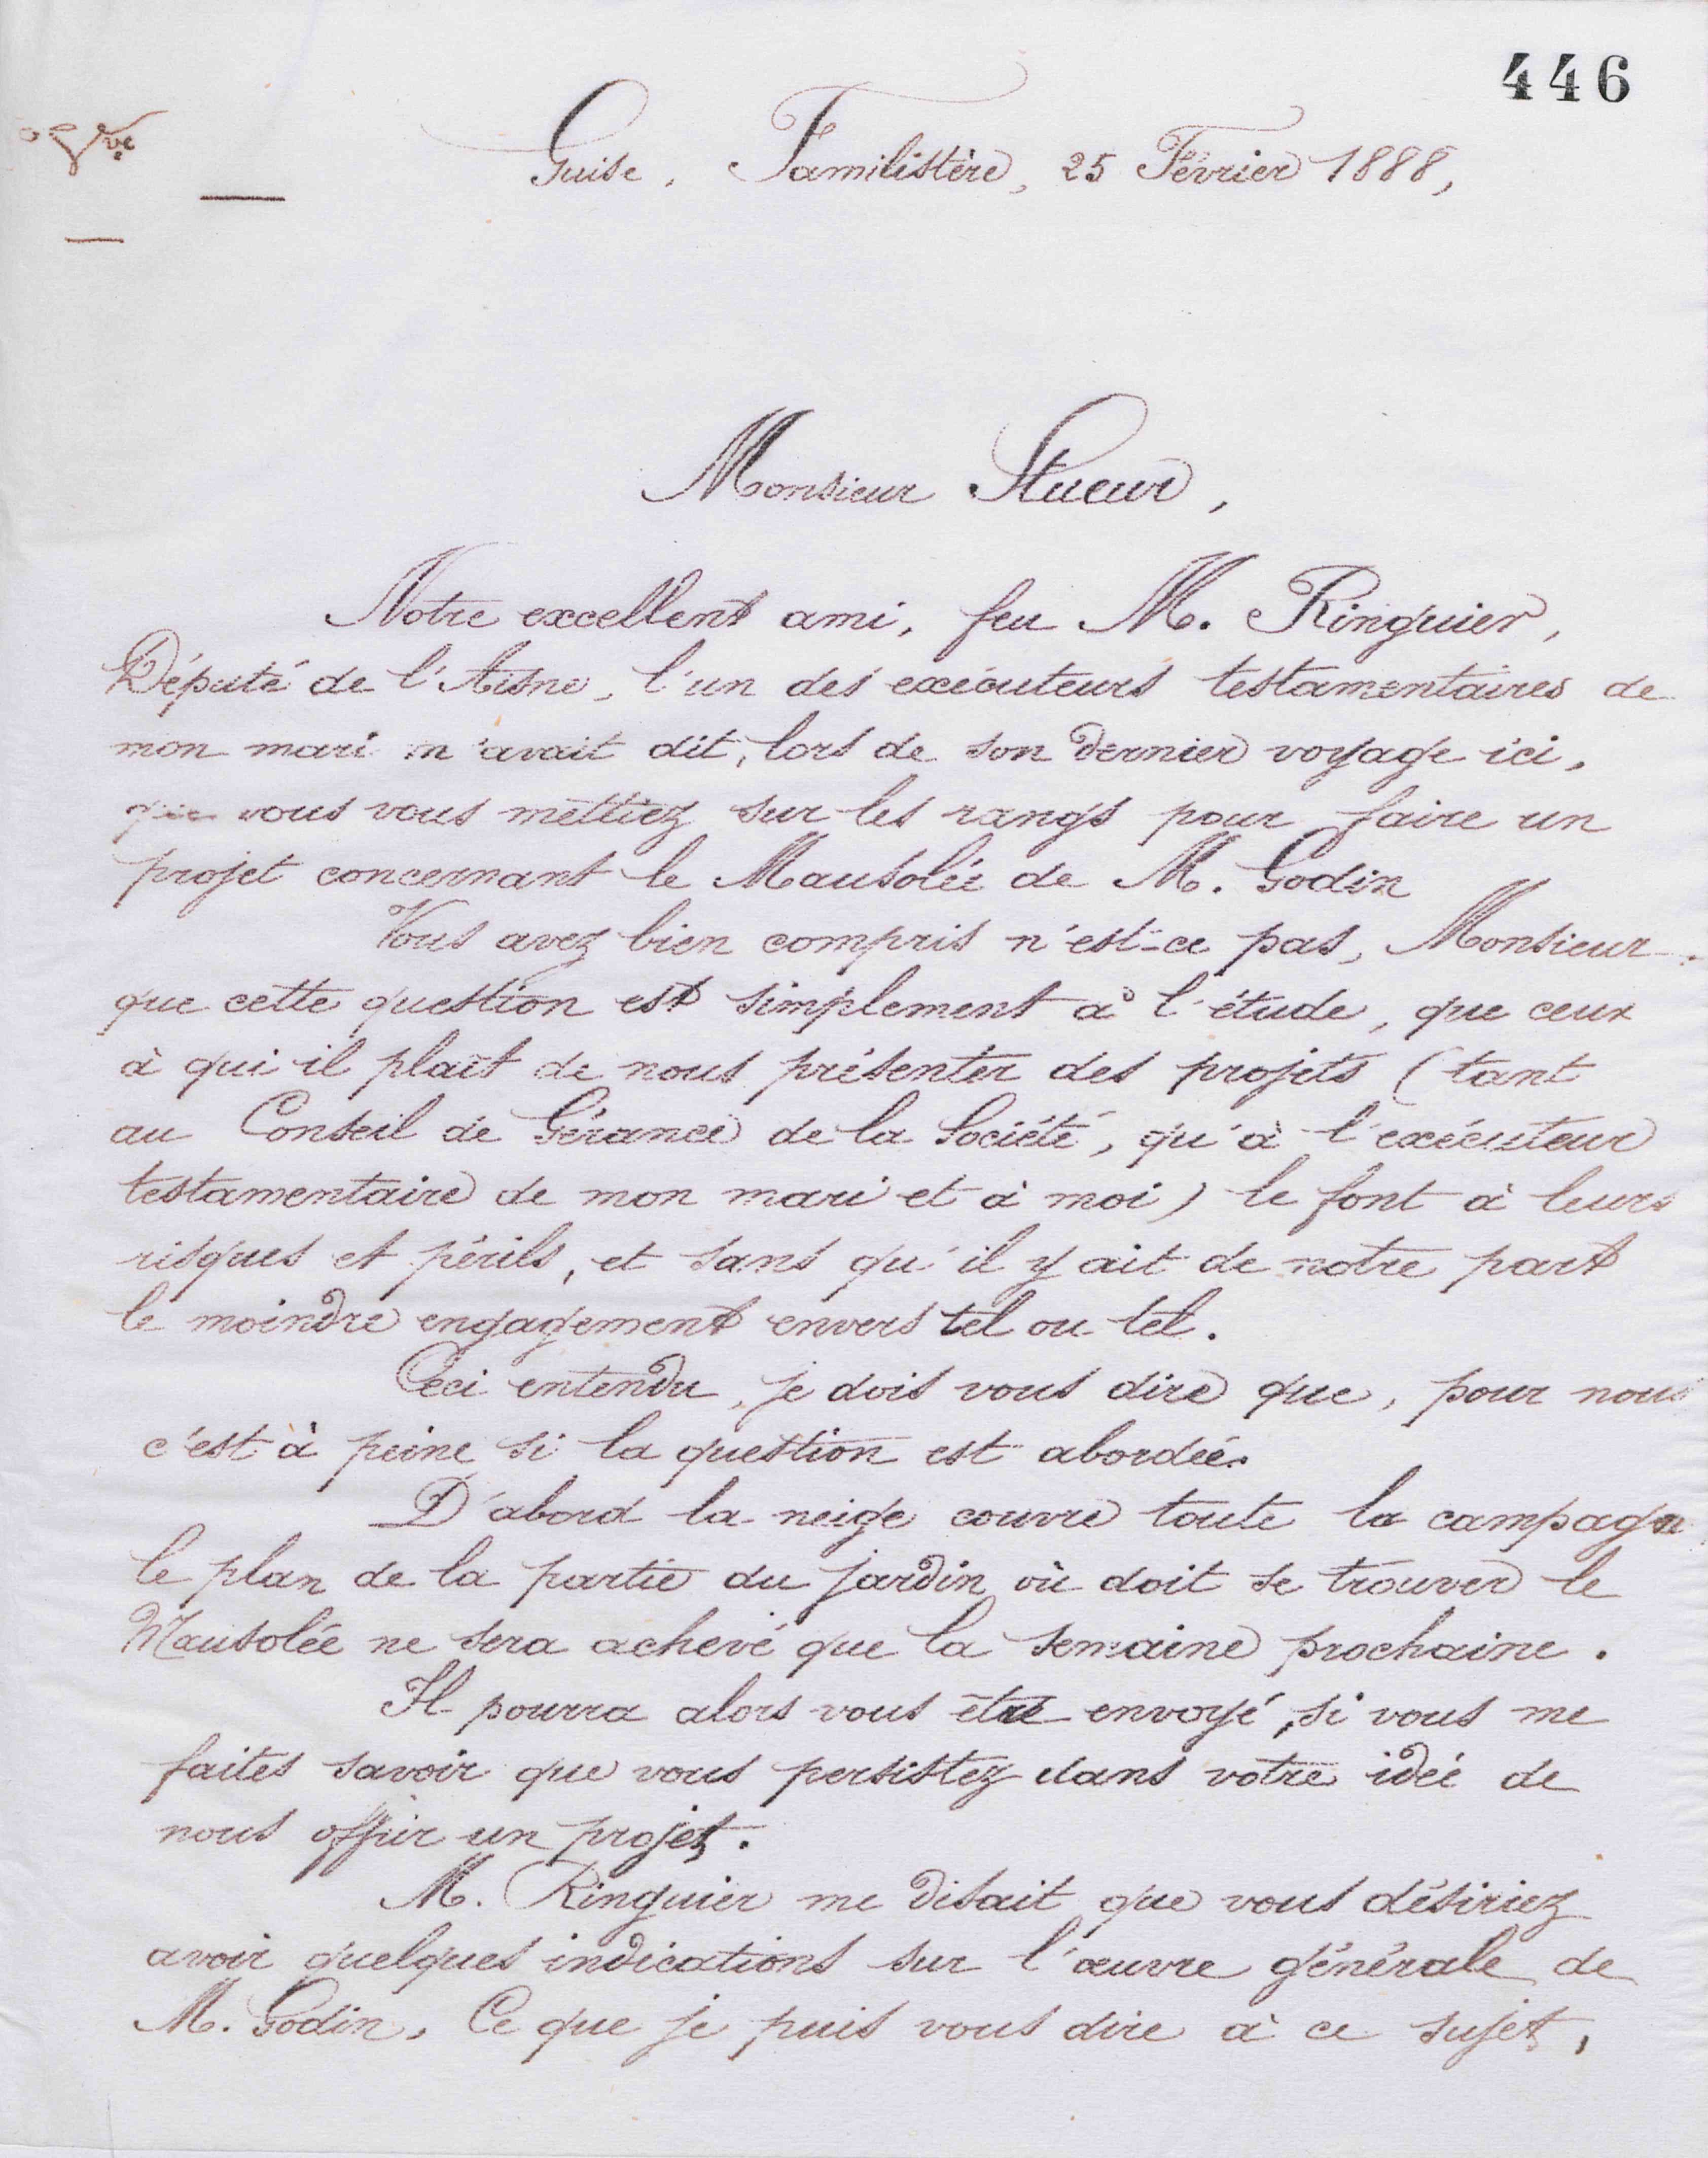 446
Vve
Guise, Familistère, 25 Février 1888,
Monsieur Stueur,
Notre excellent ami, feu M. Ringuier,
Député de l'Aisne, l'un des exécuteurs testamentaires de
mon mari m'avait dit, lors de son dernier voyage ici,
que vous vous mettiez sur les rangs pour faire un
projet concernant le Mausolée de M. Godin
Vous avez bien compris n'est-ce pas, Monsieur
que cette question est simplement à l'étude, que ceux
à qui il plaît de nous présenter des projets (tant
au Conseil de Gérance de la Société, qu'à l'exécuteur
testamentaire de mon mari et à moi) le font à leurs
risques et périls, et sans qu'il y ait de notre part
le moindre engagement envers tel ou tel.
Ceci entendu, je dois vous dire que, pour nous
c'est à peine si la question est abordée.
D'abord la neige couvre toute la campagn
le plan de la partie du jardin où doit se trouver le
Mausolée ne sera achevé que la semaine prochaine.
Il pourra alors vous être envoyé, si vous me
faites savoir que vous persistez dans votre idée de
nous offrir un projet.
M. Ringuier me disait que vous désiriez
avoir quelques indications sur l'œuvre générale de
M. Godin. Ce que je puis vous dire à ce sujet,